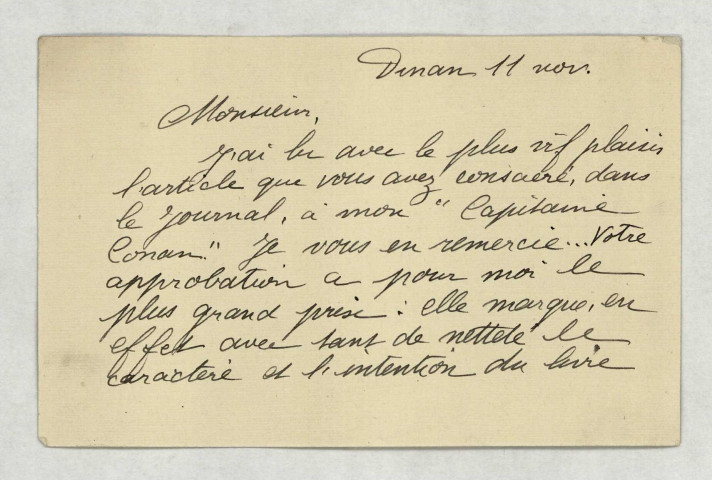 Dinan 11 nov.
Monsieur,
J'ai lu avec le plus vif plaisir
l'article que vous avez consacré, dans
le Journal, à mon "Capitaine
Conan". Je vous en remercie... Votre
approbation a pour moi le
plus grand prix : elle marque, en
effet avec tant de netteté le
caractère et l'intention du livre